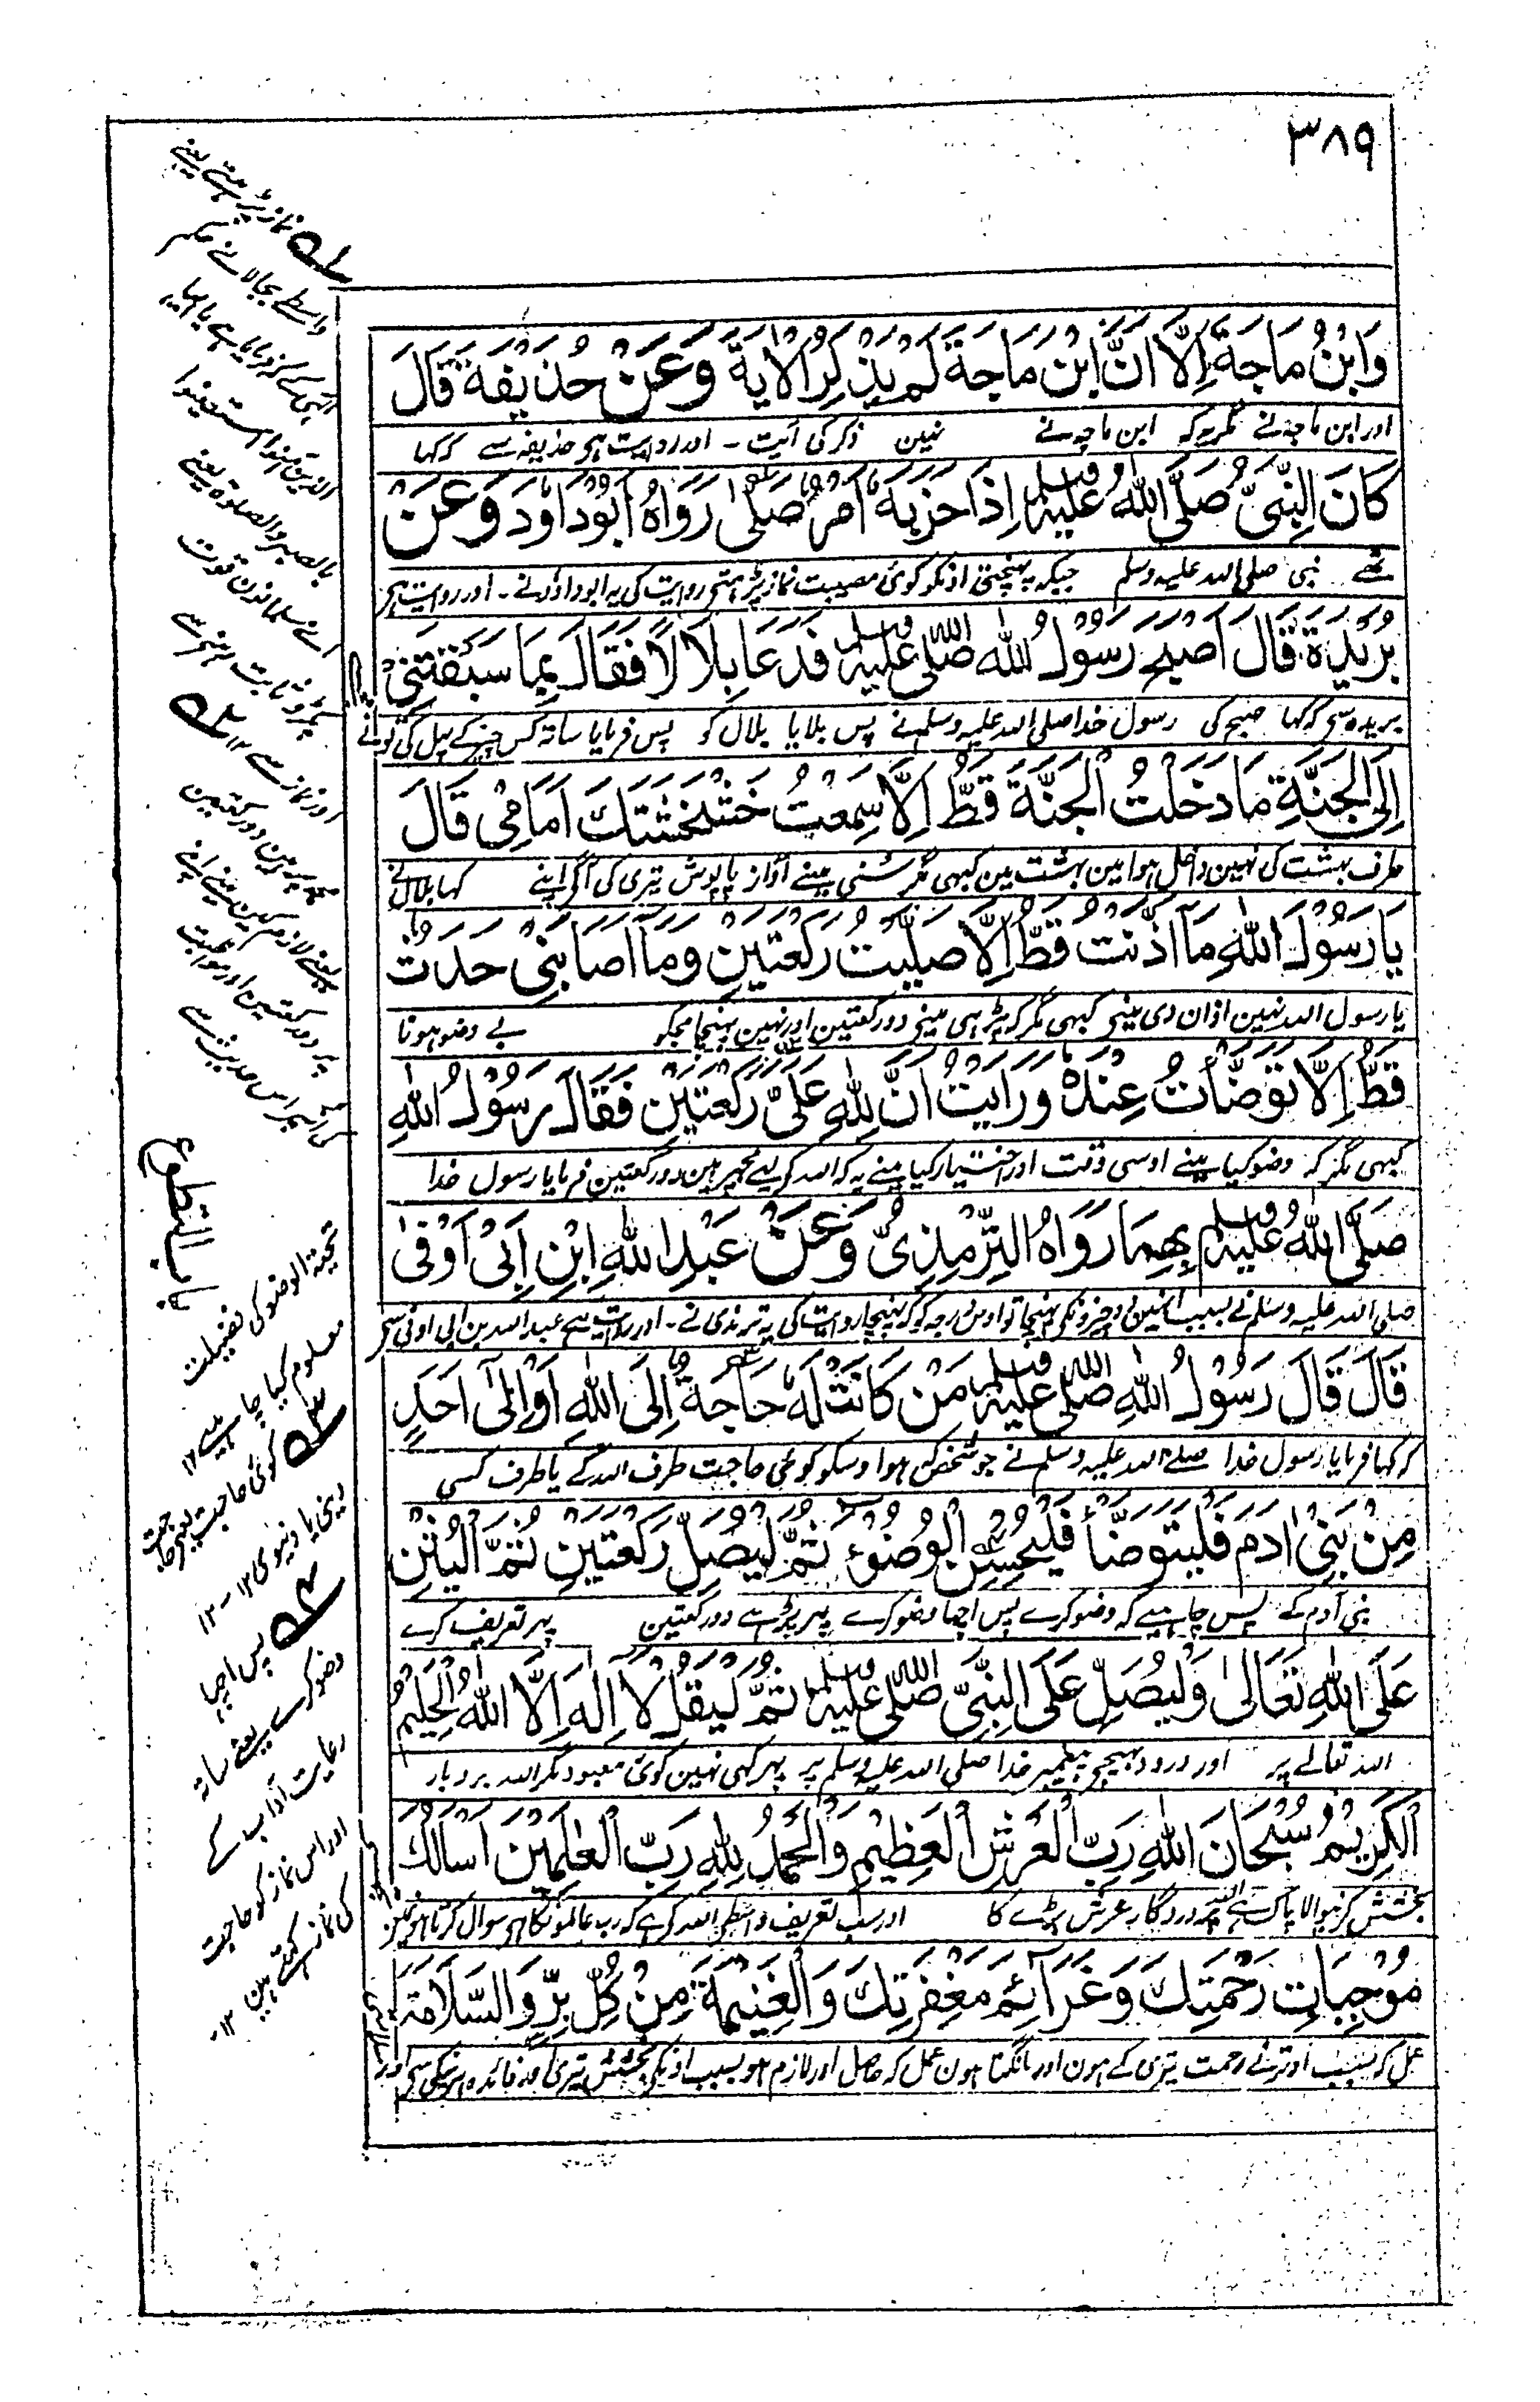 ۳۸۹
وَابْنُ مَاجَةَ اِلَّا اَنَّ ابْنَ مَاجَةَ لَمْ يَذْكُرِ الْاٰيَةَ وَعَنْ حُذَيْفَةَ قَالَ
اور ابن ماجہ نے مگر یہ کہ ابن ماجہ نے نہین ذکر کی آیت ۔ اور روایت ہے حذیفہ سے کہ کہا
كَانَ النَّبِىُّ صَلَّى اللهُ عَلَيْهِ وَسَلَّمَ اِذَا حَزَبَهٗ اَمْرٌ صَلّٰى رَوَاهُ اَبُوْدَاوٗدَ وَعَنْ
تھے نبی صلی اللہ علیہ وسلم جبکہ پہنچتی اونکو کوئی مصیبت نماز پڑہتے روایت کی یہ ابوداؤد نے ۔ اور روایت ہے
بُرَيْدَةَ قَالَ اَصْبَحَ رَسُوْلُ اللهِ صَلَّى اللهُ عَلَيْهِ وَسَلَّمَ فَدَعَا بِلَالًا فَقَالَ بِمَا سَبَقْتَنِىْ
بریدہ سے کہ کہا صبح کی رسول خدا صلی اللہ علیہ وسلم نے پس بلایا بلال کو پس فرمایا ساتہ کس چیز کے پہل کی تو نے
اِلَى الْجَنَّةِ مَا دَخَلْتُ الْجَنَّةَ قَطُّ اِلَّا سَمِعْتُ خَشْخَشَتَكَ اَمَامِىْ قَالَ
طرف بہشت کی نہین داخل ہوا مین بہشت مین کبہی مگر سنی مینے آواز پاپوش تیری کی آگے اپنے کہا بلال نے
يَا رَسُوْلَ اللهِ مَا اَذَّنْتُ قَطُّ اِلَّا صَلَّيْتُ رَكْعَتَيْنِ وَمَا اَصَابَنِىْ حَدَثٌ
یا رسول اللہ نہین اذان دی مینے کبہی مگر کہ پڑہی مینے دو رکعتین اور نہین پہنچا مجکو بے وضو ہونا
قَطُّ اِلَّا تَوَضَّأْتُ عِنْدَهٗ وَرَاَيْتُ اَنَّ لِلهِ عَلَىَّ رَكْعَتَيْنِ فَقَالَ رَسُوْلُ اللهِ
کبہی مگر کہ وضو کیا مینے اوسی وقت اور اختیار کیا مینے یہ کہ اللہ کے لیے مجہپر ہین دو رکعتین فرمایا رسول خدا
صَلَّى اللهُ عَلَيْهِ وَسَلَّمَ بِهِمَا رَوَاهُ التِّرْمِذِىُّ وَعَنْ عَبْدِ اللهِ ابْنِ اَبِىْ اَوْفٰى
صلی اللہ علیہ وسلم نے بسبب انہین دو چیزونکے پہنچا تو اوس درجہ کو کہ پہنچا روایت کی یہ ترمذی نے ۔ اور روایت ہے عبد اللہ بن ابی اوفی سے
قَالَ قَالَ رَسُوْلُ اللهِ صَلَّى اللهُ عَلَيْهِ وَسَلَّمَ مَنْ كَانَتْ لَهٗ حَاجَةٌ اِلَى اللهِ اَوْ اِلٰى اَحَدٍ
کہ کہا فرمایا رسول خدا صلے اللہ علیہ وسلم نے جو شخص کہ ہو اوسکو کوئی حاجت طرف اللہ کے یا طرف کسی
مِنْ بَنِىْ اٰدَمَ فَلْيَتَوَضَّأْ فَلْيُحْسِنِ الْوُضُوْءَ ثُمَّ لْيُصَلِّ رَكْعَتَيْنِ ثُمَّ لْيُثْنِ
بنی آدم کے پس چاہیے کہ وضو کرے پس اچہا وضو کرے پہر پڑہے دو رکعتین پہر تعریف کرے
عَلَى اللهِ تَعَالٰى وَلْيُصَلِّ عَلَى النَّبِىِّ صَلَّى اللهُ عَلَيْهِ وَسَلَّمَ ثُمَّ لْيَقُلْ لَا اِلٰهَ اِلَّا اللهُ الْحَلِيْمُ
اللہ تعالے پر اور درود بہیجے پیغمبر خدا صلی اللہ علیہ وسلم پر پہر کہی نہین کوئی معبود مگر اللہ بردبار
الْكَرِيْمُ سُبْحَانَ اللهِ رَبِّ الْعَرْشِ الْعَظِيْمِ وَالْحَمْدُ لِلهِ رَبِّ الْعٰلَمِيْنَ اَسْاَلُكَ
بخشش کرنیوالا پاک ہے اللہ پروردگار عرش بڑے کا اور سب تعریف واسطے اللہ کے ہے کہ رب عالمونکا ہے سوال کرتا ہون مین
مُوْجِبَاتِ رَحْمَتِكَ وَعَزَائِمَ مَغْفِرَتِكَ وَالْغَنِيْمَةَ مِنْ كُلِّ بِرٍّ وَالسَّلَامَةَ
عمل کہ بسبب اوترنے رحمت تیری کے ہون اور مانگتا ہون عمل کہ حاصل اور لازم ہو بسبب اونکے بخشش تیری اور فائدہ ہر نیکی سے اور
نماز پڑہتے یعنے
واسطے بجا لانے حکم
الٰہی کے کہ فرمایا ہے یا ایہا
الذین آمنوا استعینوا
بالصبر والصلوۃ یعنے
اے مسلمانون قوت
اور نماز سے ۱۲
مجہپر ہین دو رکعتین
یعنے لازم کین مینے اپنے
پر دو رکعتین اور مواظبت
باب التطوع
تحیۃ الوضو کی فضیلت
معلوم کیا چاہیے ۱۲
کوئی حاجت یعنے حاجت
دینی یا دنیوی ۱۲
پس اچہا
وضو کرے یعنے ساتہ
رعایت آداب کے
اور اس نماز کو حاجت
کی نماز کہتے ہین ۱۲